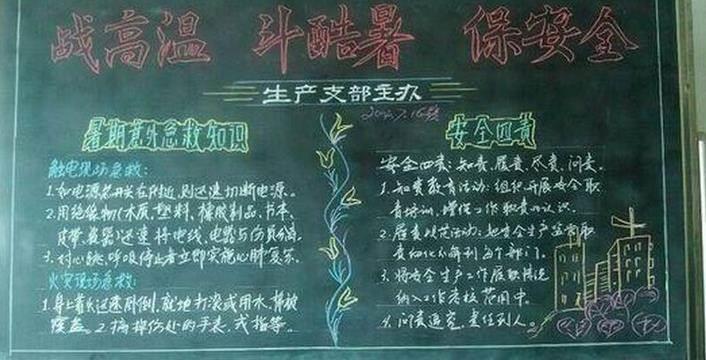 战高温 斗酷暑 保安全
生产支部主办
暑期意外急救知识
触电现场急救:
1.如电源名开关在附近,则迅速切断电源。
2.用绝缘物(木质、塑料、橡胶制品、书本、
皮带、瓷器)迅速将电线、电器与伤员分离。
3.对心跳、呼吸停止者立即实施心肺复苏。
火灾现场急救:
1.身上着火迅速卧倒,就地打滚或用水、棉被
覆盖。2.摘掉伤处的手表、戒指等。
安全四责
安全四责:知责、履责、尽责、问责。
1.知责教育活动:组织开展安全职
责培训,增强工作职责的认识。
2.履责 活动:把安全生产监管职
责细化分解到各个部门。
3.将安全生产工作履职情况
纳入工作考核范围中。
4.问责追究,责任到人。